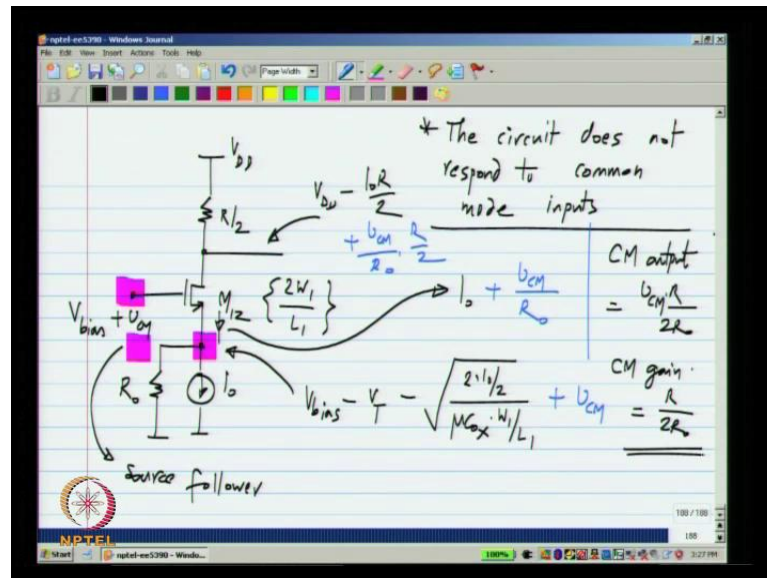 nptel-ee5390 - Windows Journal
File Edit View Insert Actions Tools Help
Page Width
* The circuit does not
respond to common
mode inputs
V_DD
R/2
V_DD - I_0R/2
+ υ_CM/R_0 · R/2
V_bias + υ_CM
M_12 {2W_1/L_1}
I_0 + υ_CM/R_0
CM output
= υ_CM R/2R_0
R_0
I_0
V_bias - V_T - √(2·I_0/2 / μC_ox·W_1/L_1) + υ_CM
CM gain
= R/2R_0
Source follower
NPTEL
188 / 188
188
Start
nptel-ee5390 - Windo...
100%
3:27 PM